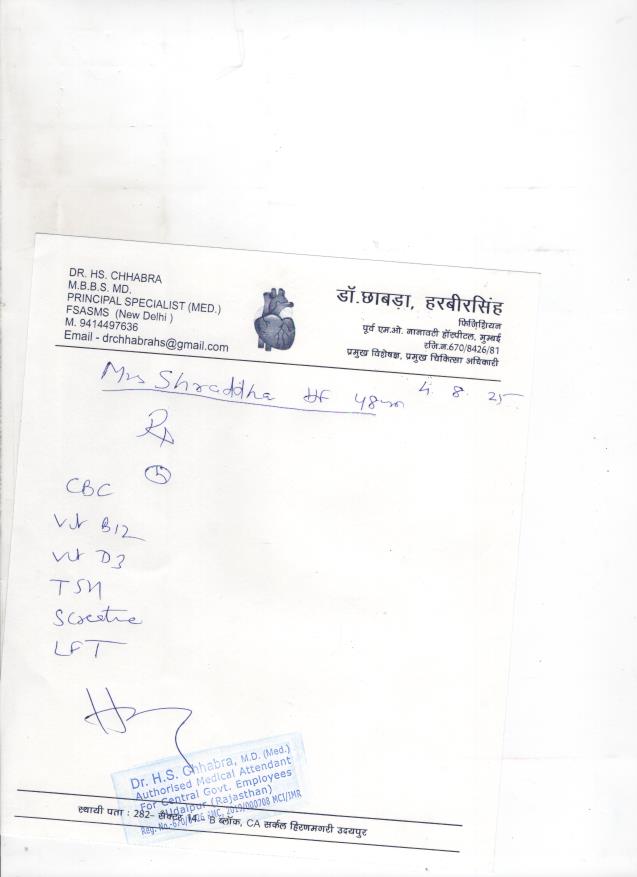 DR. HS. CHHABRA
M.B.B.S. MD.
PRINCIPAL SPECIALIST (MED.)
FSASMS (New Delhi )
M. 9414497636
Email - drchhabrahs@gmail.com
डॉ.छाबड़ा, हरबीरसिंह
फिजिशियन
पूर्व एम.ओ. नानावटी हॉस्पीटल, मुम्बई
रजि.न.670/8426/81
प्रमुख विशेषज्ञ, प्रमुख चिकित्सा अधिकारी
Mrs Shraddha 48 4. 8. 25
Rx
CBC
Vit B12
Vit D3
TSH
LFT
Dr. H.S. Chhabra, M.D. (Med.)
Authorised Medical Attendant
For Central Govt. Employees
Udaipur (Rajasthan)
Reg. No.-670/8426 SMC, 2019/000708 MCI/IMR
स्थायी पता : 282- सेक्टर 14, B ब्लॉक, CA सर्कल हिरणमगरी उदयपुर